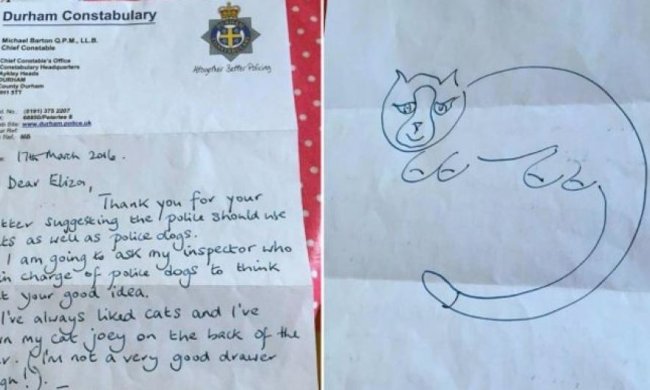 Durham Constabulary
Michael Barton Q.P.M., LL.B.
Chief Constable
Altogether Better Policing
Chief Constable's Office
Constabulary Headquarters
Aykley Heads
DURHAM
County Durham
DH1 5TT
(0191) 375 2207
www.durham.police.uk
Ref
Ref. MB
17th March 2016.
Dear Eliza,
Thank you for your
suggesting the police should use
as well as police dogs.
I am going to ask my inspector who
in charge of police dogs to think
your good idea.
I've always liked cats and I've
my cat joey on the back of the
(I'm not a very good drawer